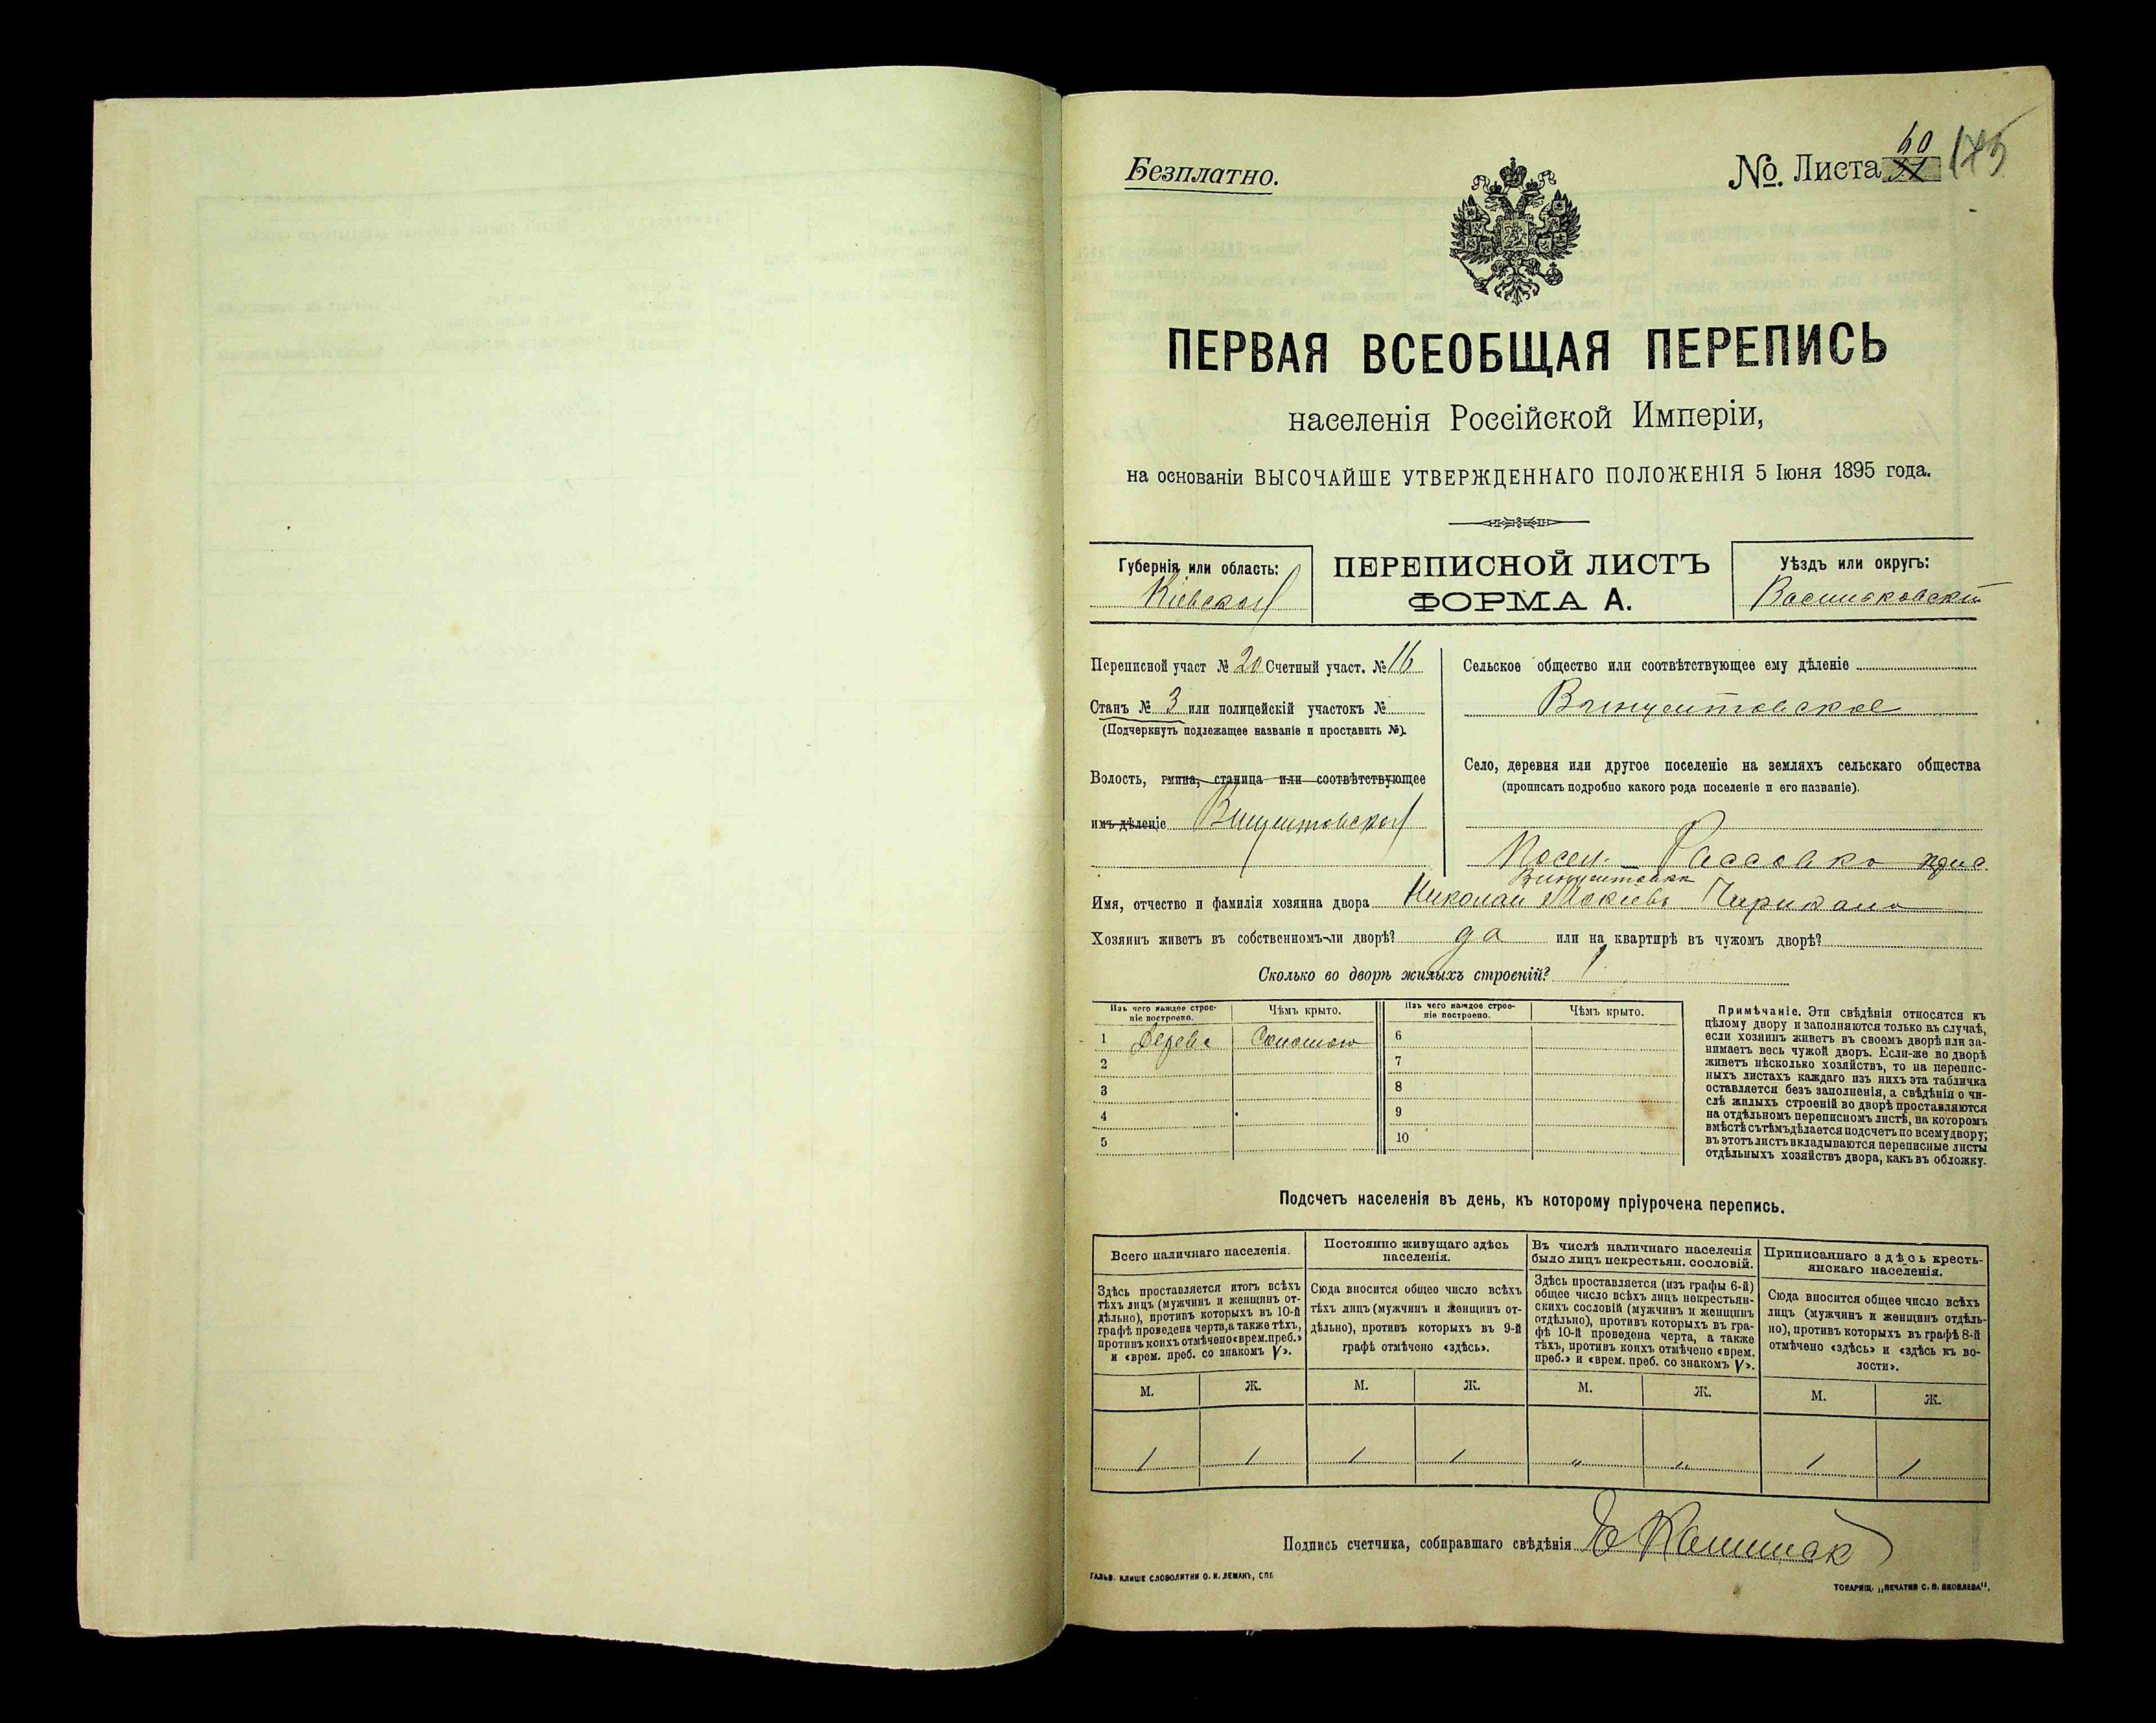 Безплатно.
№. Листа 60
ПЕРВАЯ ВСЕОБЩАЯ ПЕРЕПИСЬ
населенія Россійской Имперіи,
на основаніи ВЫСОЧАЙШЕ УТВЕРЖДЕННАГО ПОЛОЖЕНІЯ 5 Іюня 1895 года.
Губернія или область:
Кіевская
ПЕРЕПИСНОЙ ЛИСТЪ
ФОРМА А.
Уѣздъ или округъ:
Васильковскій
Переписной участ № 20 Счетный участ. № 16
Станъ № 3 или полицейскій участокъ №
(Подчеркнуть подлежащее названіе и проставить №).
Волость, гмина, станица или соотвѣтствующее
имъ дѣленіе Винцентовская
Сельское общество или соотвѣтствующее ему дѣленіе
Винцентовское
Село, деревня или другое поселеніе на земляхъ сельскаго общества
(прописать подробно какого рода поселеніе и его названіе).
Посел. — Рассовка
Винцентовка
Имя, отчество и фамилія хозяина двора Николай
Хозяинъ живетъ въ собственномъ-ли дворѣ? да или на квартирѣ въ чужомъ дворѣ?
Сколько во дворѣ жилыхъ строеній? 1
Изъ чего каждое строе-
ніе построено.
Чѣмъ крыто.
Изъ чего каждое строе-
ніе построено.
Чѣмъ крыто.
1 Дерева Соломою 6
2 7
3 8
4 9
5 10
Примѣчаніе. Эти свѣдѣнія относятся къ
цѣлому двору и заполняются только въ случаѣ,
если хозяинъ живетъ въ своемъ дворѣ или за-
нимаетъ весь чужой дворъ. Если-же во дворѣ
живетъ нѣсколько хозяйствъ, то на перепис-
ныхъ листахъ каждаго изъ нихъ эта табличка
оставляется безъ заполненія, а свѣдѣнія о чи-
слѣ жилыхъ строеній во дворѣ проставляются
на отдѣльномъ переписномъ листѣ, на которомъ
вмѣстѣ съ тѣмъ дѣлается подсчетъ по всему двору;
въ этотъ листъ вкладываются переписные листы
отдѣльныхъ хозяйствъ двора, какъ въ обложку.
Подсчетъ населенія въ день, къ которому пріурочена перепись.
Всего наличнаго населенія.
Здѣсь проставляется итогъ всѣхъ
тѣхъ лицъ (мужчинъ и женщинъ от-
дѣльно), противъ которыхъ въ 10-й
графѣ проведена черта, а также тѣхъ,
противъ коихъ отмѣчено «врем. преб.»
и «врем. преб. со знакомъ V».
Постоянно живущаго здѣсь
населенія.
Сюда вносится общее число всѣхъ
тѣхъ лицъ (мужчинъ и женщинъ от-
дѣльно), противъ которыхъ въ 9-й
графѣ отмѣчено «здѣсь».
Въ числѣ наличнаго населенія
было лицъ некрестьян. сословій.
Здѣсь проставляется (изъ графы 6-й)
общее число всѣхъ лицъ некрестьян-
скихъ сословій (мужчинъ и женщинъ
отдѣльно), противъ которыхъ въ гра-
фѣ 10-й проведена черта, а также
тѣхъ, противъ коихъ отмѣчено «врем.
преб.» и «врем. преб. со знакомъ V».
Приписаннаго здѣсь кресть-
янскаго населенія.
Сюда вносится общее число всѣхъ
лицъ (мужчинъ и женщинъ отдѣль-
но), противъ которыхъ въ графѣ 8-й
отмѣчено «здѣсь» и «здѣсь къ во-
лости».
М. Ж. М. Ж. М. Ж. М. Ж.
1 1 1 1 „ „ 1 1
Подпись счетчика, собиравшаго свѣдѣнія
ГАЛЬВ. КЛИШЕ СЛОВОЛИТНИ О. И. ЛЕМАНЪ, СПБ.
ТОВАРИЩ. „ПЕЧАТНЯ С. П. ЯКОВЛЕВА".